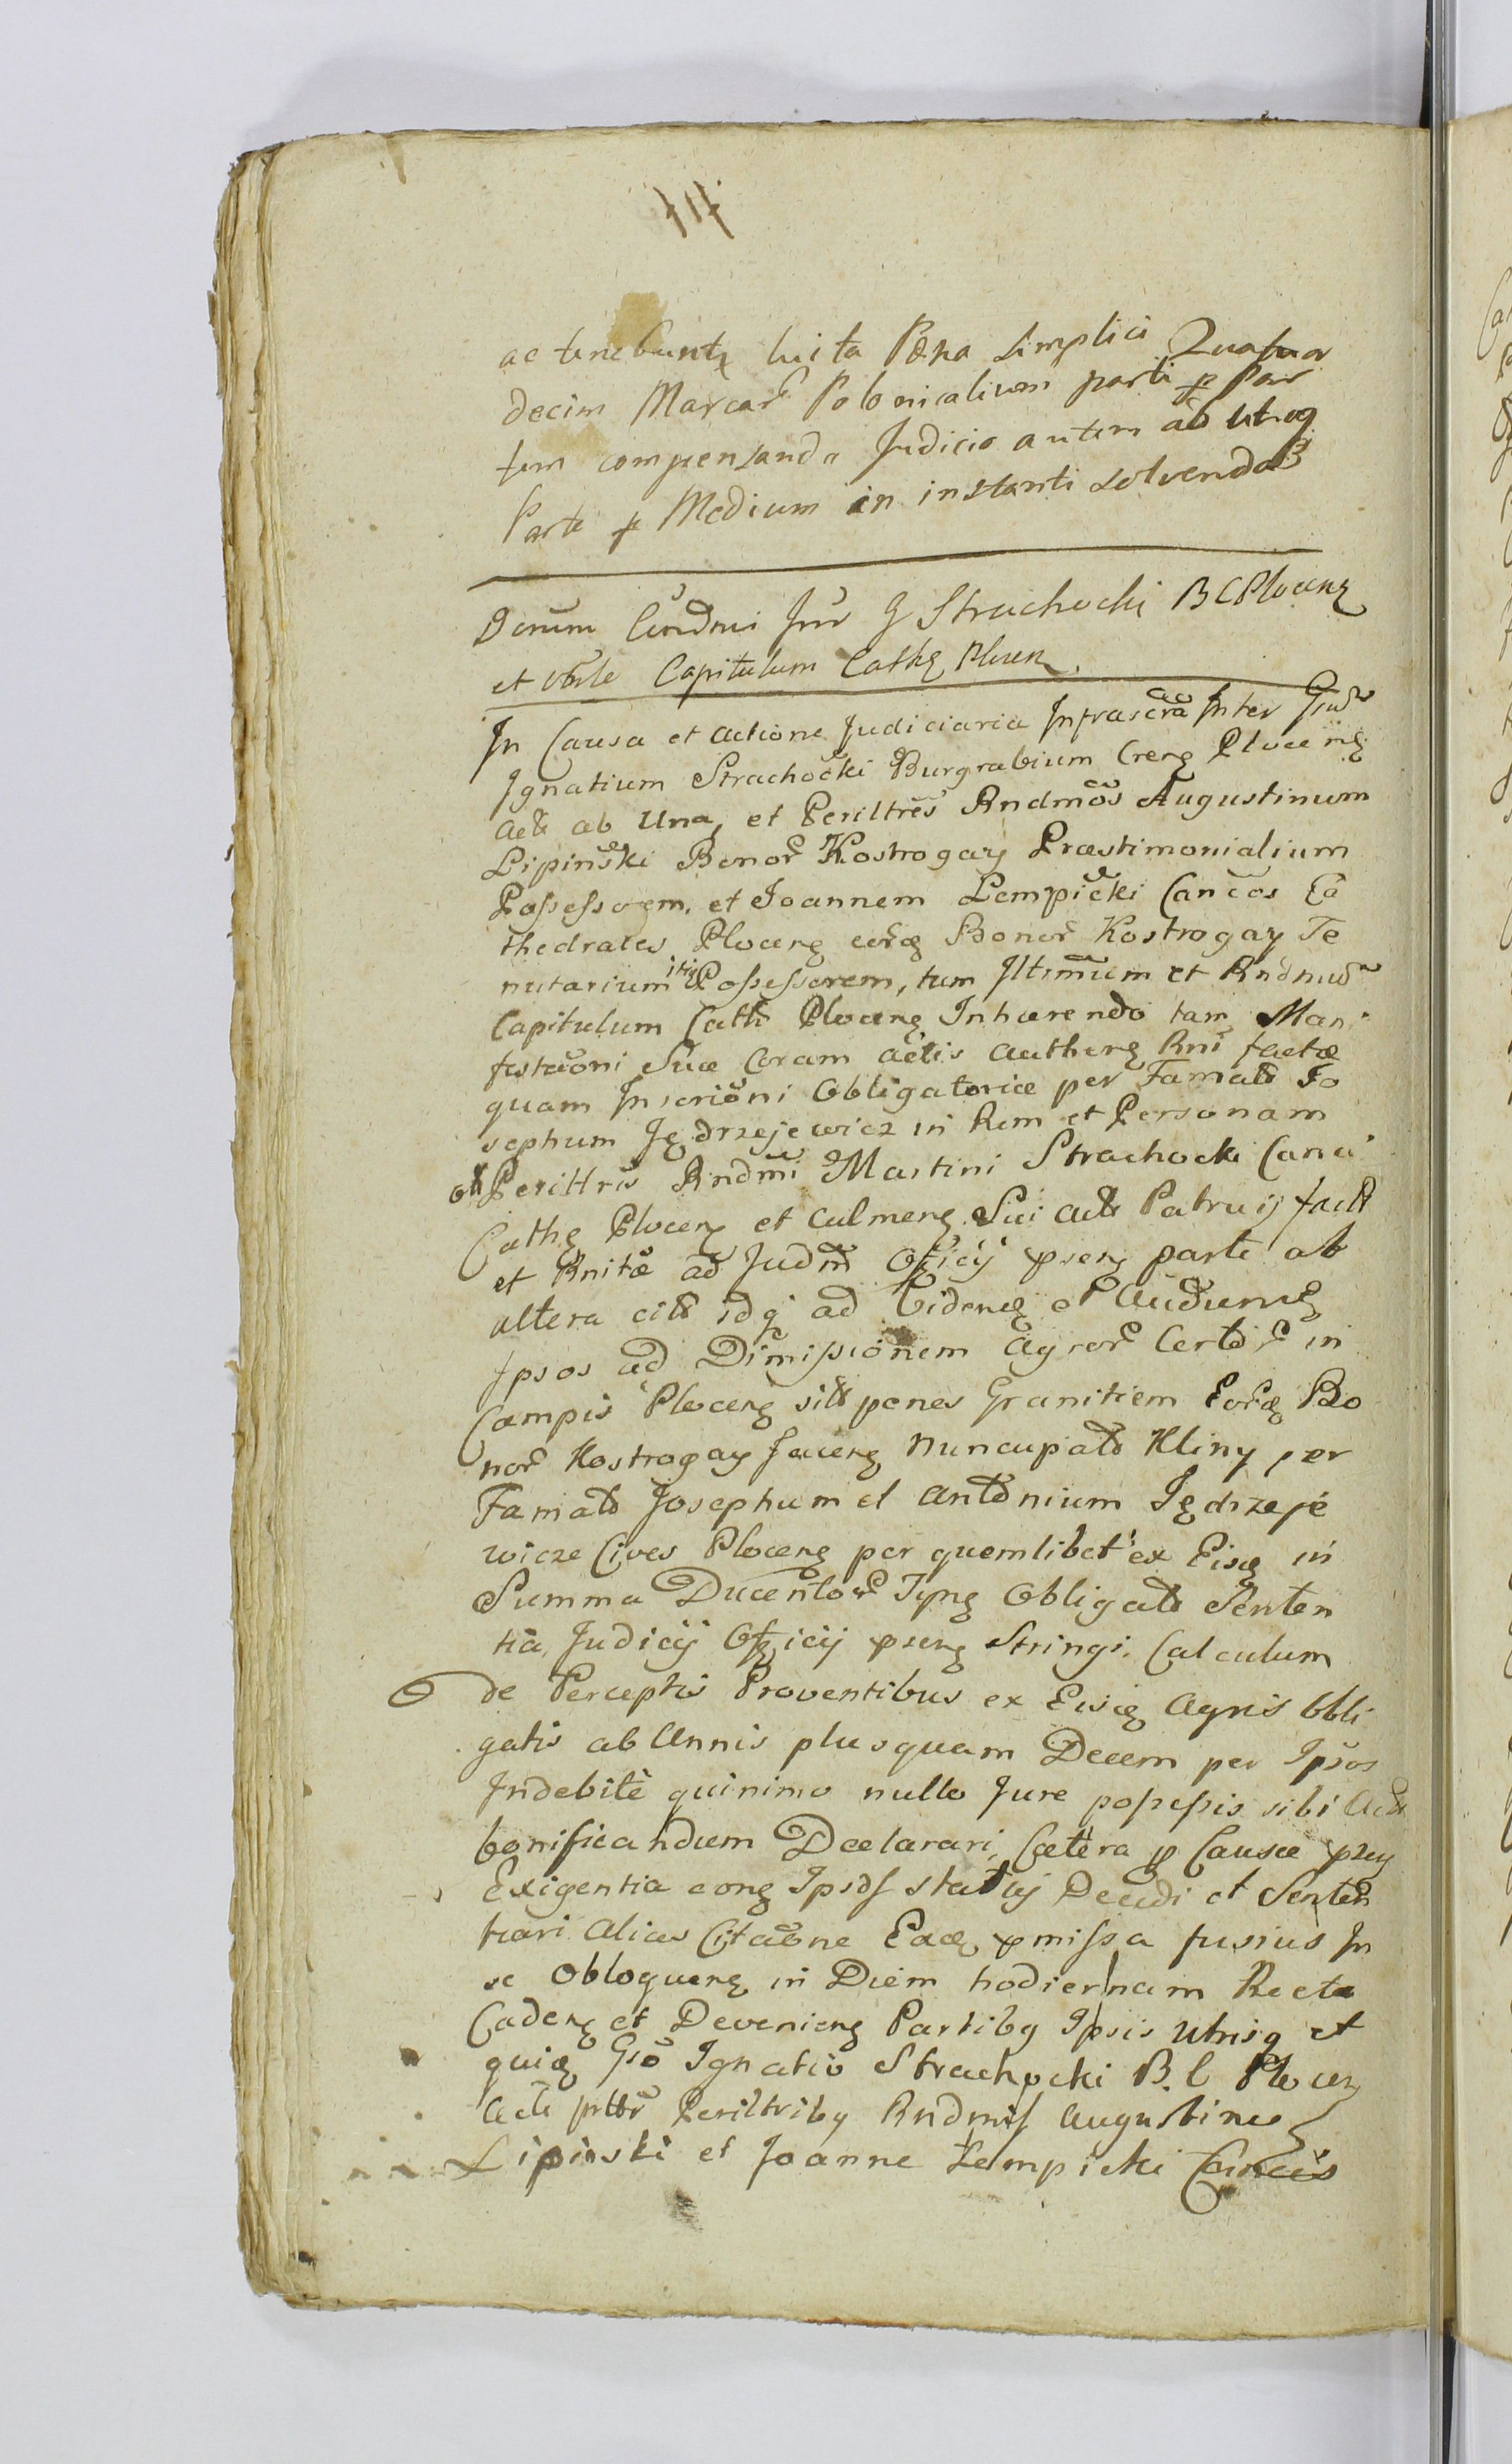 117
ac tenebuntr luita Pæna simplici Quatuor
decim Marcar Polonicalium parti p Par
tem compensanda Judicio autem ab utraq
Parte p Medium in instanti solvendas
Inter G Strachocki BCPlocens
et Vbile Capitulum Cathe Plocen.
In Causa et actione Judiciaria Infrascra Inter Gnd
Ignatium Strachocki Burgrabium Crens Plocens
actt ab Una, et Perilltres Rndmos Augustinum
Lipinski Bonor Kostrogay Præstimonialium
Possessorem, et Joannem Lempicki Cancos Ca
thedrales Plocens eorq Bonor Kostrogay Te
nutarium itq Possessorem, tum Illsmum et Rndmu
Capitulum Cath Plocens Inhærendo tam Mani
festaoni Suæ Coram actis authens Rni factæ
quam Inscrioni Obligatoriæ per Famatt Jo
sephum Jędrzejewicz in Rem et Personam
ol Perilltris Rndmi Martini Strachocki Canci
Cathe Plocens et Culmens Sui actt Patruij factt
et Rnitæ ad Judm Officij psens parte ab
altera citt idq ad Videndq et Audiendq
Ipsos ad Dimissionem Agror Certor in
Campis Plocens sitt penes Granitiem Eorq Bo
nor Kostrogay Jacens nuncupatt Kliny per
Famatt Josephum et Antonium Jędrzeje
wicze Cives Plocens per quemlibet ex Eisq in
Summa Ducentor Tyns Obligatt Senten
tia Judicij Officij psens Stringi. Calculum
de Perceptis Proventibus ex Eisq Agris Obli
gatis ab Annis plusquam Decem per Ipsos
Indebitè quinimo nullo Jure possessis sibi Actt
bonificandum Declarari, Cætera p Causæ psens
Exigentia cong Ipsos statuj Decidi et Senten
tiari alias Citaone Eaq pmissa fusius In
se Obloquens in Diem hodiernam Recte
Cadens et Deveniens Partibq Ipsis Utrisq et
quiq Gso Ignatio Strachocki B. C Plocens
actt prttr Perilltribq Rndmis Augustino
Lipinski et Joanne Lempicki Cancis